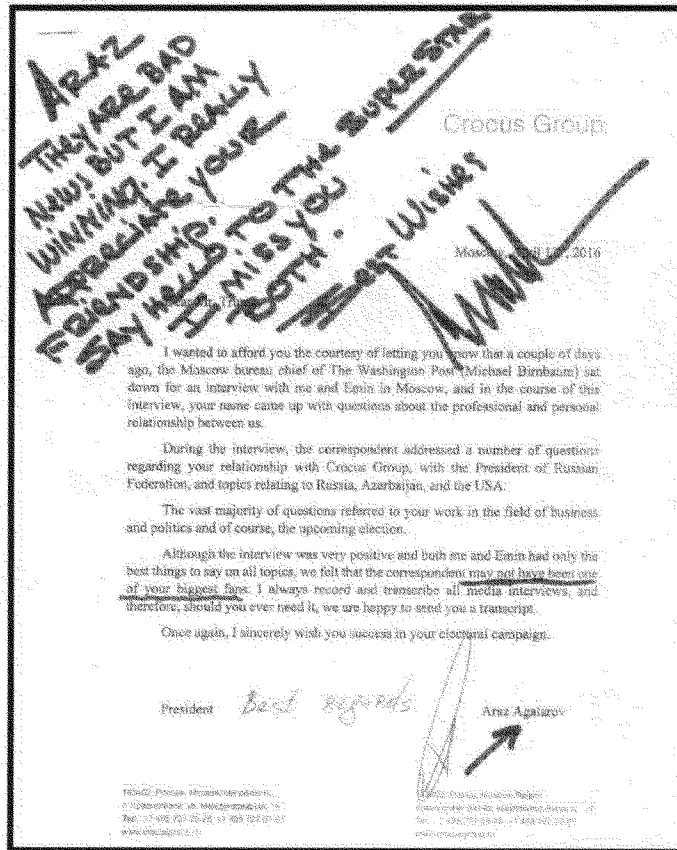 ARAZ
THEY ARE BAD
NEWS BUT I AM
WINNING. I REALLY
APPRECIATE YOUR
FRIENDSHIP.
SAY HELLO TO THE SUPER STAR
I MISS YOU
BOTH.
BEST WISHES
Crocus Group
Moscow, 2016
I wanted to afford you the courtesy of letting you know that a couple of days
ago, the Moscow bureau chief of The Washington Post (Michael Birnbaum) sat
down for an interview with me and Emin in Moscow, and in the course of this
interview, your name came up with questions about the professional and personal
relationship between us.
During the interview, the correspondent addressed a number of questions
regarding your relationship with Crocus Group, with the President of Russian
Federation, and topics relating to Russia, Azerbaijan, and the USA.
The vast majority of questions referred to your work in the field of business
and politics and of course, the upcoming election.
Although the interview was very positive and both me and Emin had only the
best things to say on all topics, we felt that the correspondent may not have been one
of your biggest fans. I always record and transcribe all media interviews, and
therefore, should you ever need it, we are happy to send you a transcript.
Once again, I sincerely wish you success in your electoral campaign.
President Best regards Araz Agalarov